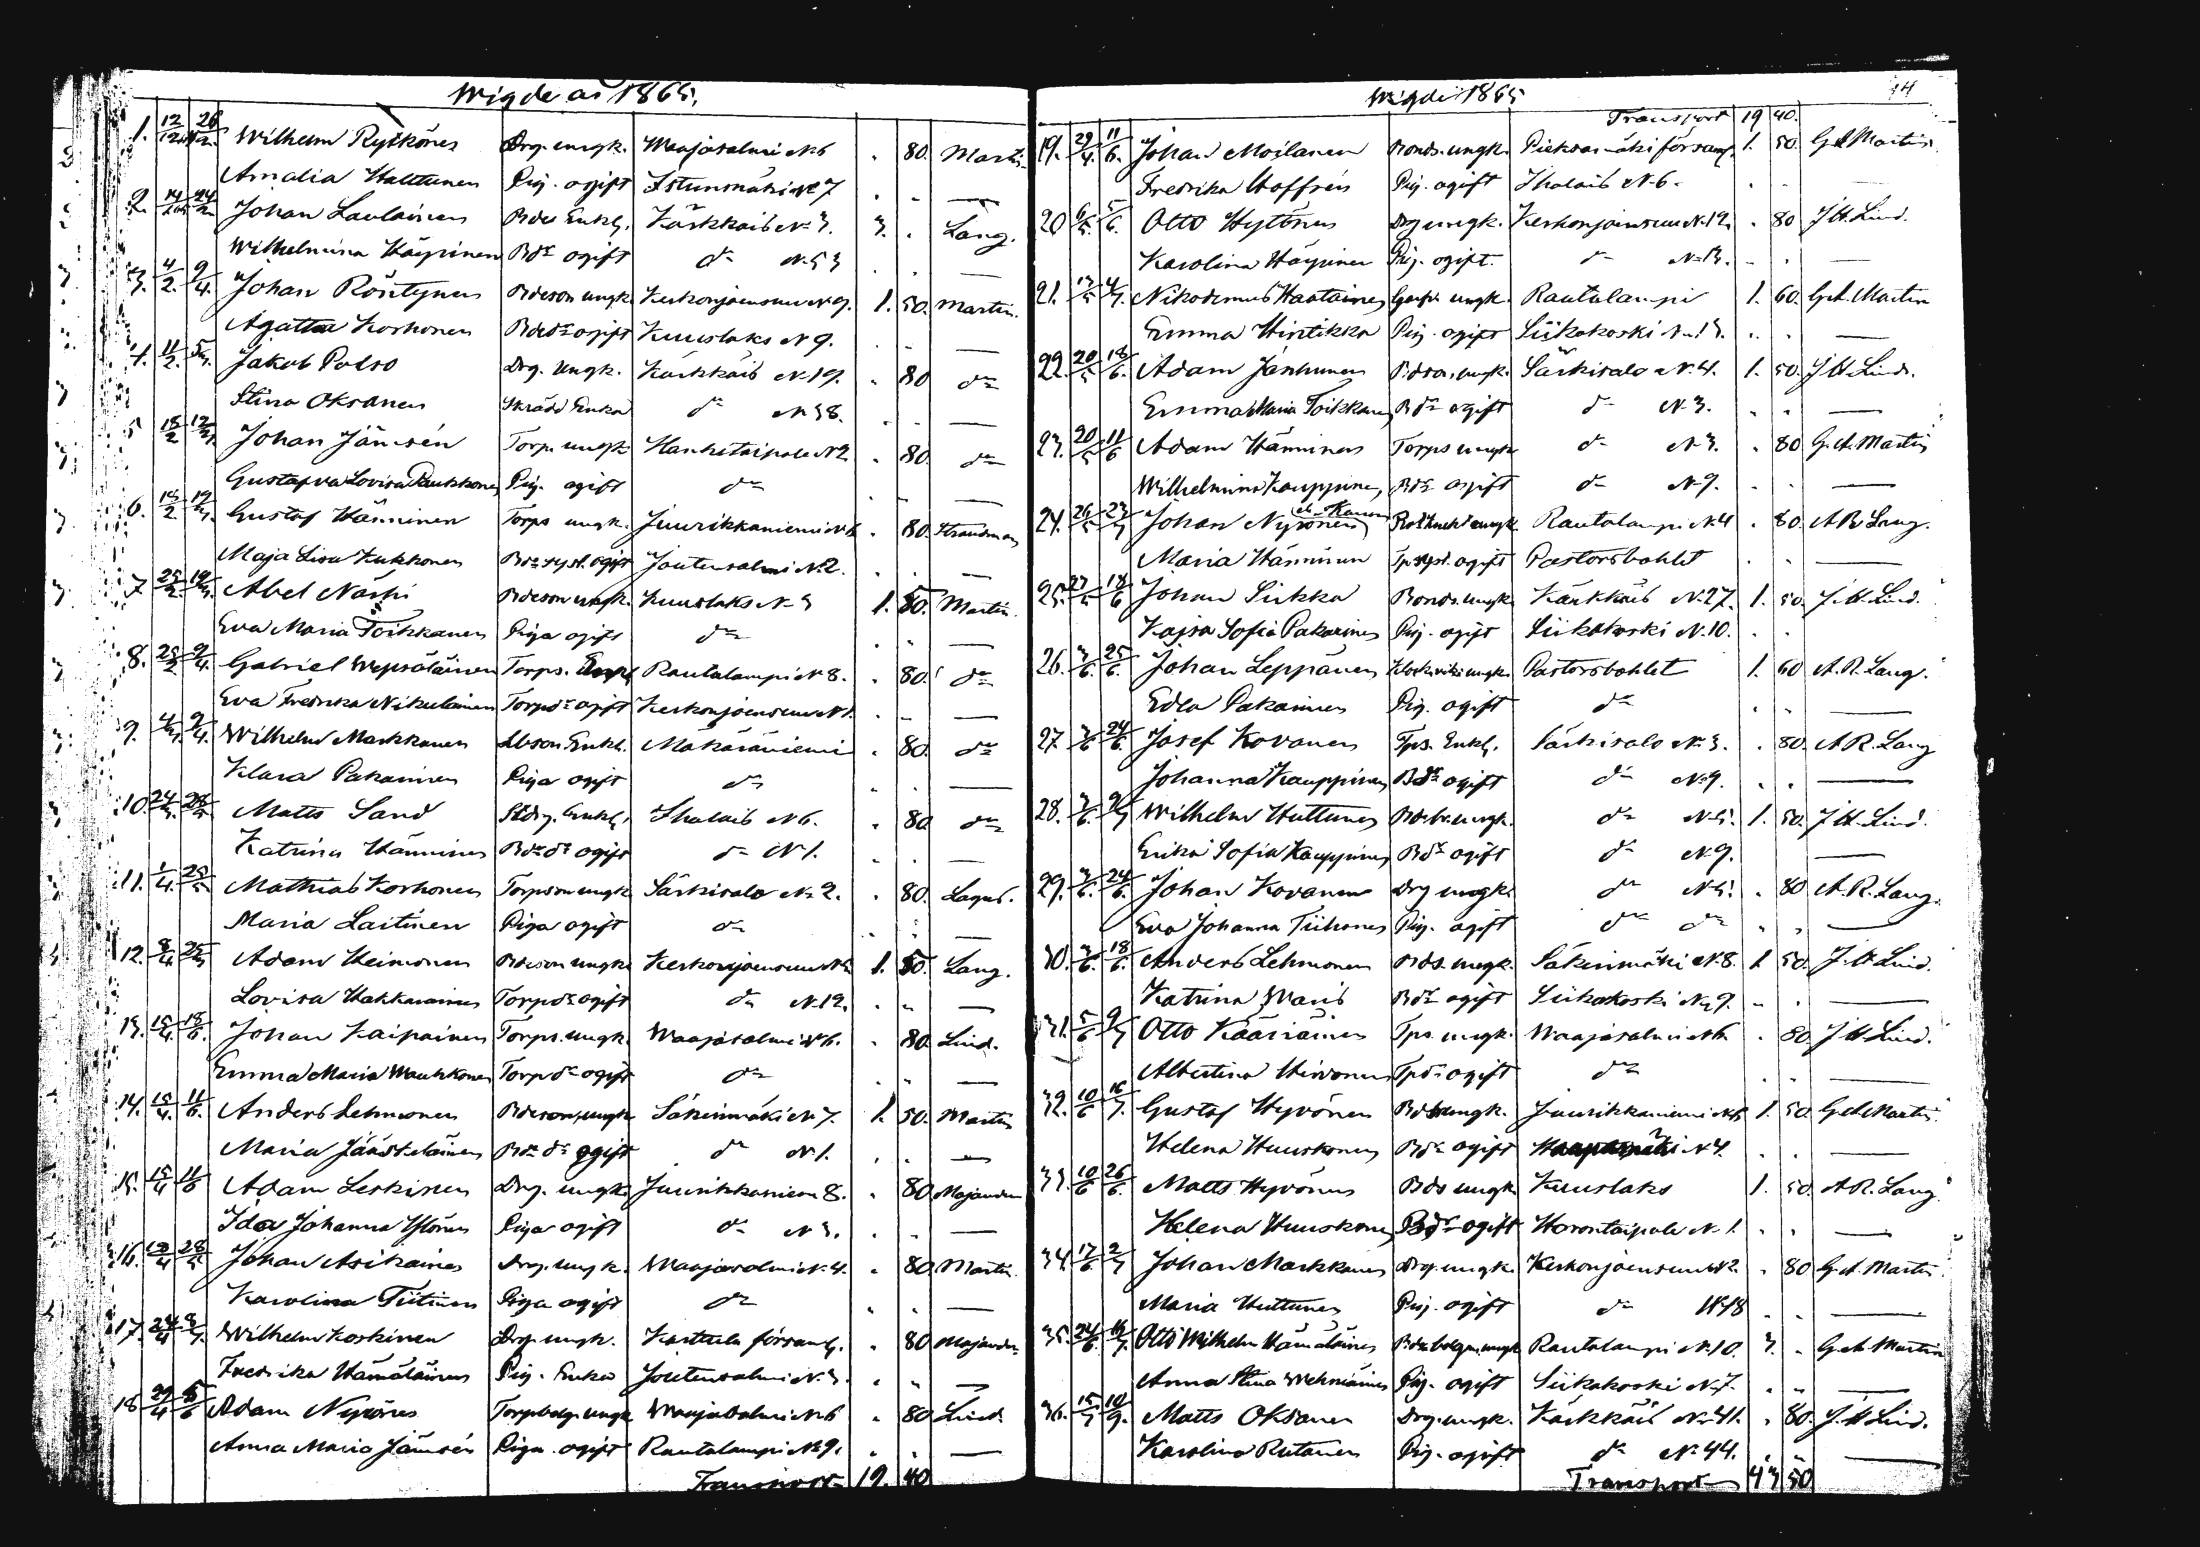 Wigde år 1865.
1. 12/12 26/12 Wilhelm Rytkönen Drg. ungk. Waajasalmi N6 . 80. Martin
Amalia Halttunen Pig. ogift Istunmäki N 7 . . —
2. 14/2 24/2 Johan Laulainen Bdes Enkl. Kärkkäis N 3. 3. . Lang.
Wilhelmina Häyrinen Bdr ogift do N 53 . . —
3. 4/2. 9/4. Johan Röntynen Bdeson ungk. Kerkonjoensuu N 9. 1. 50. Martin.
Agatha Korhonen Bdedr ogift Kuuslaks N 9. . . —
4. 11/2. 5/3. Jakob Polso Drg. Ungk. Kärkkäis N. 19. . 80 do
Stina Oksanen Skrädd Enka do N 38. . . —
5 18/2 12/3. Johan Jämsén Torp. ungk. Hanketaipale N 2. . 80. do
Gustafva Lovisa Puukkonen Pig. ogift do . . —
6. 18/2 19/3. Gustaf Hänninen Torps ungk. Juurikkaniemi N 6 . 80. Strandman
Maja Lisa Kukkonen Bdr syst. ogift Joutensalmi N. 2. . . —
7 25/2 19/3. Abel Närhi Bdeson ungk. Kuuslaks N 3 1. 50. Martin.
Eva Maria Toikkanen Piga ogift do . . —
8. 25/2 9/4. Gabriel Wepsäläinen Torps. Enkl Rautalampi N 8. . 80. do
Eva Fredrika Nikulainen Torpdr ogift Kerkonjoensuu N 1. . . —
9. 4/3. 9/4. Wilhelm Markkanen Enkl. Mäkäräniemi . 80. do
Klara Pakarinen Piga ogift do . . —
10. 24/3. 28/5 Matts Sand Enkl. Ihalais N 6. . 80 do
Katrina Hänninen Bde dr ogift do N 1. . . —
11. 1/4. 25/5 Mathias Korhonen Torpson ungk Särkisalo N. 2. . 80. Lagus.
Maria Laitinen Piga ogift do . . —
12. 8/4 25/5 Adam Heimonen Bdeson ungk Kerkonjoensuu 1. 50. Lang.
Lovisa Hakkarainen Torpdr ogift do N. 12. . . —
13. 15/4. 18/6. Johan Kaipainen Torps. ungk. Waajasalmi N 6. . 80. Lind.
Emma Maria Wauhkonen Torpdr ogift do . . —
14. 15/4. 11/6. Anders Lehmonen Bdeson, ungk Säkinmäki N 7. 1. 50. Martin
Maria Jääskeläinen Bde dr ogift do N 1. . . —
15. 15/4 11/6 Adam Leskinen Drg. ungk. Juurikkaniemi 8. . 80 Majander
Ida Johanna Ylönen Piga ogift do N 3. . . —
16. 15/4 28/5 Johan Asikainen Drg. ungk. Waajasalmi N. 4. . 80. Martin.
Karolina Tiitinen Piga ogift do . . —
17. 24/4 8/7. Wilhelm Koskinen Drg. ungk. Karttula församl. . 80 Majander
Fredrika Hämäläinen Pig. Enka Joutensalmi N. 3. . . —
18 29/4 5/6 Adam Nyrönen Torpbolg. ungk Waajasalmi N 6 . 80 Lind.
Anna Maria Jämsén Piga ogift Rautalampi N 9. . . —
Transport 19. 40
Wigde 1865 14
Transport 19 40.
19. 29/4. 11/6. Johan Moilanen Bonds. ungk. Pieksämäki församl. 1. 50. G A Martin.
Fredrika Hoffrén Pig. ogift Ihalais N 6. . . —
20 6/5. 5/6. Otto Hytönen Drg ungk. Kerkonjoensuu N. 12. . 80 J H. Lind.
Karolina Häyrinen Pig. ogift. do N. 13. . . —
21. 13/5 4/7. Nikodemus Haatainen ungk. Rautalampi 1. 60. G A. Martin
Emma Hintikka Pig. ogift Siikakoski N. 13. . . —
22. 20/5 18/6. Adam Jänhunen Bdson, ungk. Särkisalo N. 4. 1. 50. J H. Lind.
Emma Maria Toikkanen Bdr ogift do N. 3. . . —
23. 20/5 11/6 Adam Hänninen Torps ungk do N. 3. . 80 G. A. Martin
Wilhelmina Kauppinen, Bdr ogift do N. 9. . . —
24. 26/5 23/7 Johan Nyrönen ungk Rautalampi N 4 . 80. A R Lang.
Maria Hänninen Tp syst. ogift Pastorsbohlet . . —
25. 27/5 18/6 Johan Sirkka Bonds. ungk Kärkkäis N. 27. 1. 50. J. H. Lind.
Kajsa Sofia Pakarinen Pig. ogift Siikakoski N. 10. . .
26. 3/6. 25/6. Johan Leppänen ungk. Pastorsbohlet 1. 60 A. R. Lang.
Edla Pakarinen Pig. ogift do . . —
27. 3/6 24/6. Josef Kovanen Tps. Enkl. Särkisalo N. 3. . 80. A R. Lang
Johanna Kauppinen Bdr ogift do N. 9. . . —
28. 3/6. 9/7 Wilhelm Huttunen ungk. do N. 5. 1. 50. J H. Lind.
Erika Sofia Kauppinen Bdr ogift do N. 9. —
29. 3/6. 24/6. Johan Kovanen Drg ungk. do N. 5. . 80 A. R. Lang.
Eva Johanna Tiihonen Pig. ogift do do . . —
30. 3/6. 18/6. Anders Lehmonen Bds. ungk. Säkinmäki N. 8. 1 50. J. H. Lind.
Katrina Waris Bdr ogift Siikakoski N. 9. . . —
31. 5/6 9/7 Otto Kääriäinen Tps. ungk. Waajasalmi N 6. . 80. J H Lind.
Albertina Hirvonen Tpdr ogift do . . —
32. 10/6 16/7. Gustaf Hyvönen Bds ungk. Juurikkaniemi N 6 1. 50. G A Martin.
Helena Huuskonen Bdr ogift N 4. . . —
33. 10/6 26/6. Matts Hyvönen Bds ungk Kuuslaks 1. 50. A R. Lang.
Helena Huuskonen Bdr ogift Horontaipale N. 1. . . —
34. 17/6 2/7 Johan Markkanen Drg. ungk. Kerkonjoensuu N 2. . 80 G. A. Martin.
Maria Huttunen Pig. ogift do N 18 . . —
35. 24/6. 16/7. Otto Wilhelm Hämäläinen ungk Rautalampi N. 10. 3. . G. A. Martin
Anna Stina Wehniäinen Pig. ogift Siikakoski N. 7. . . —
36. 15/7 10/9. Matts Oksanen Drg. ungk. Kärkkäis N. 41. . 80. J. H Lind.
Karolina Rutanen Pig. ogift do N. 44. . . —
Transport 43 50